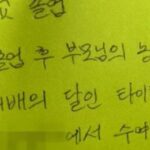 졸업
졸업 후 부모님의 농
재배의 달인 타이
에서 수여